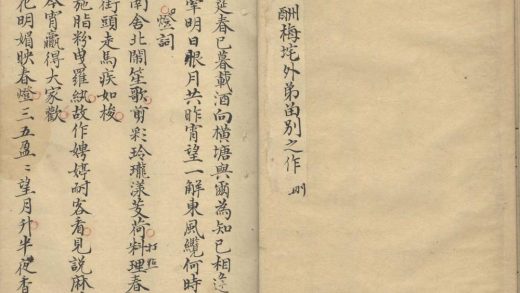 酬梅垞外弟畱別之作 刪
延春已暮載酒向橫塘與爾為知已相逢
明日眼月共昨宵望一解東風纜何時
燈詞
南舍北鬧笙歌前彩玲瓏漾芰荷料理春
打點
街頭走馬疾如梭
施脂粉曳羅紈故作娉婷耐客看見說麻
今宵贏得大家歡
花明媚映春燈三五盈〻望月升半夜香